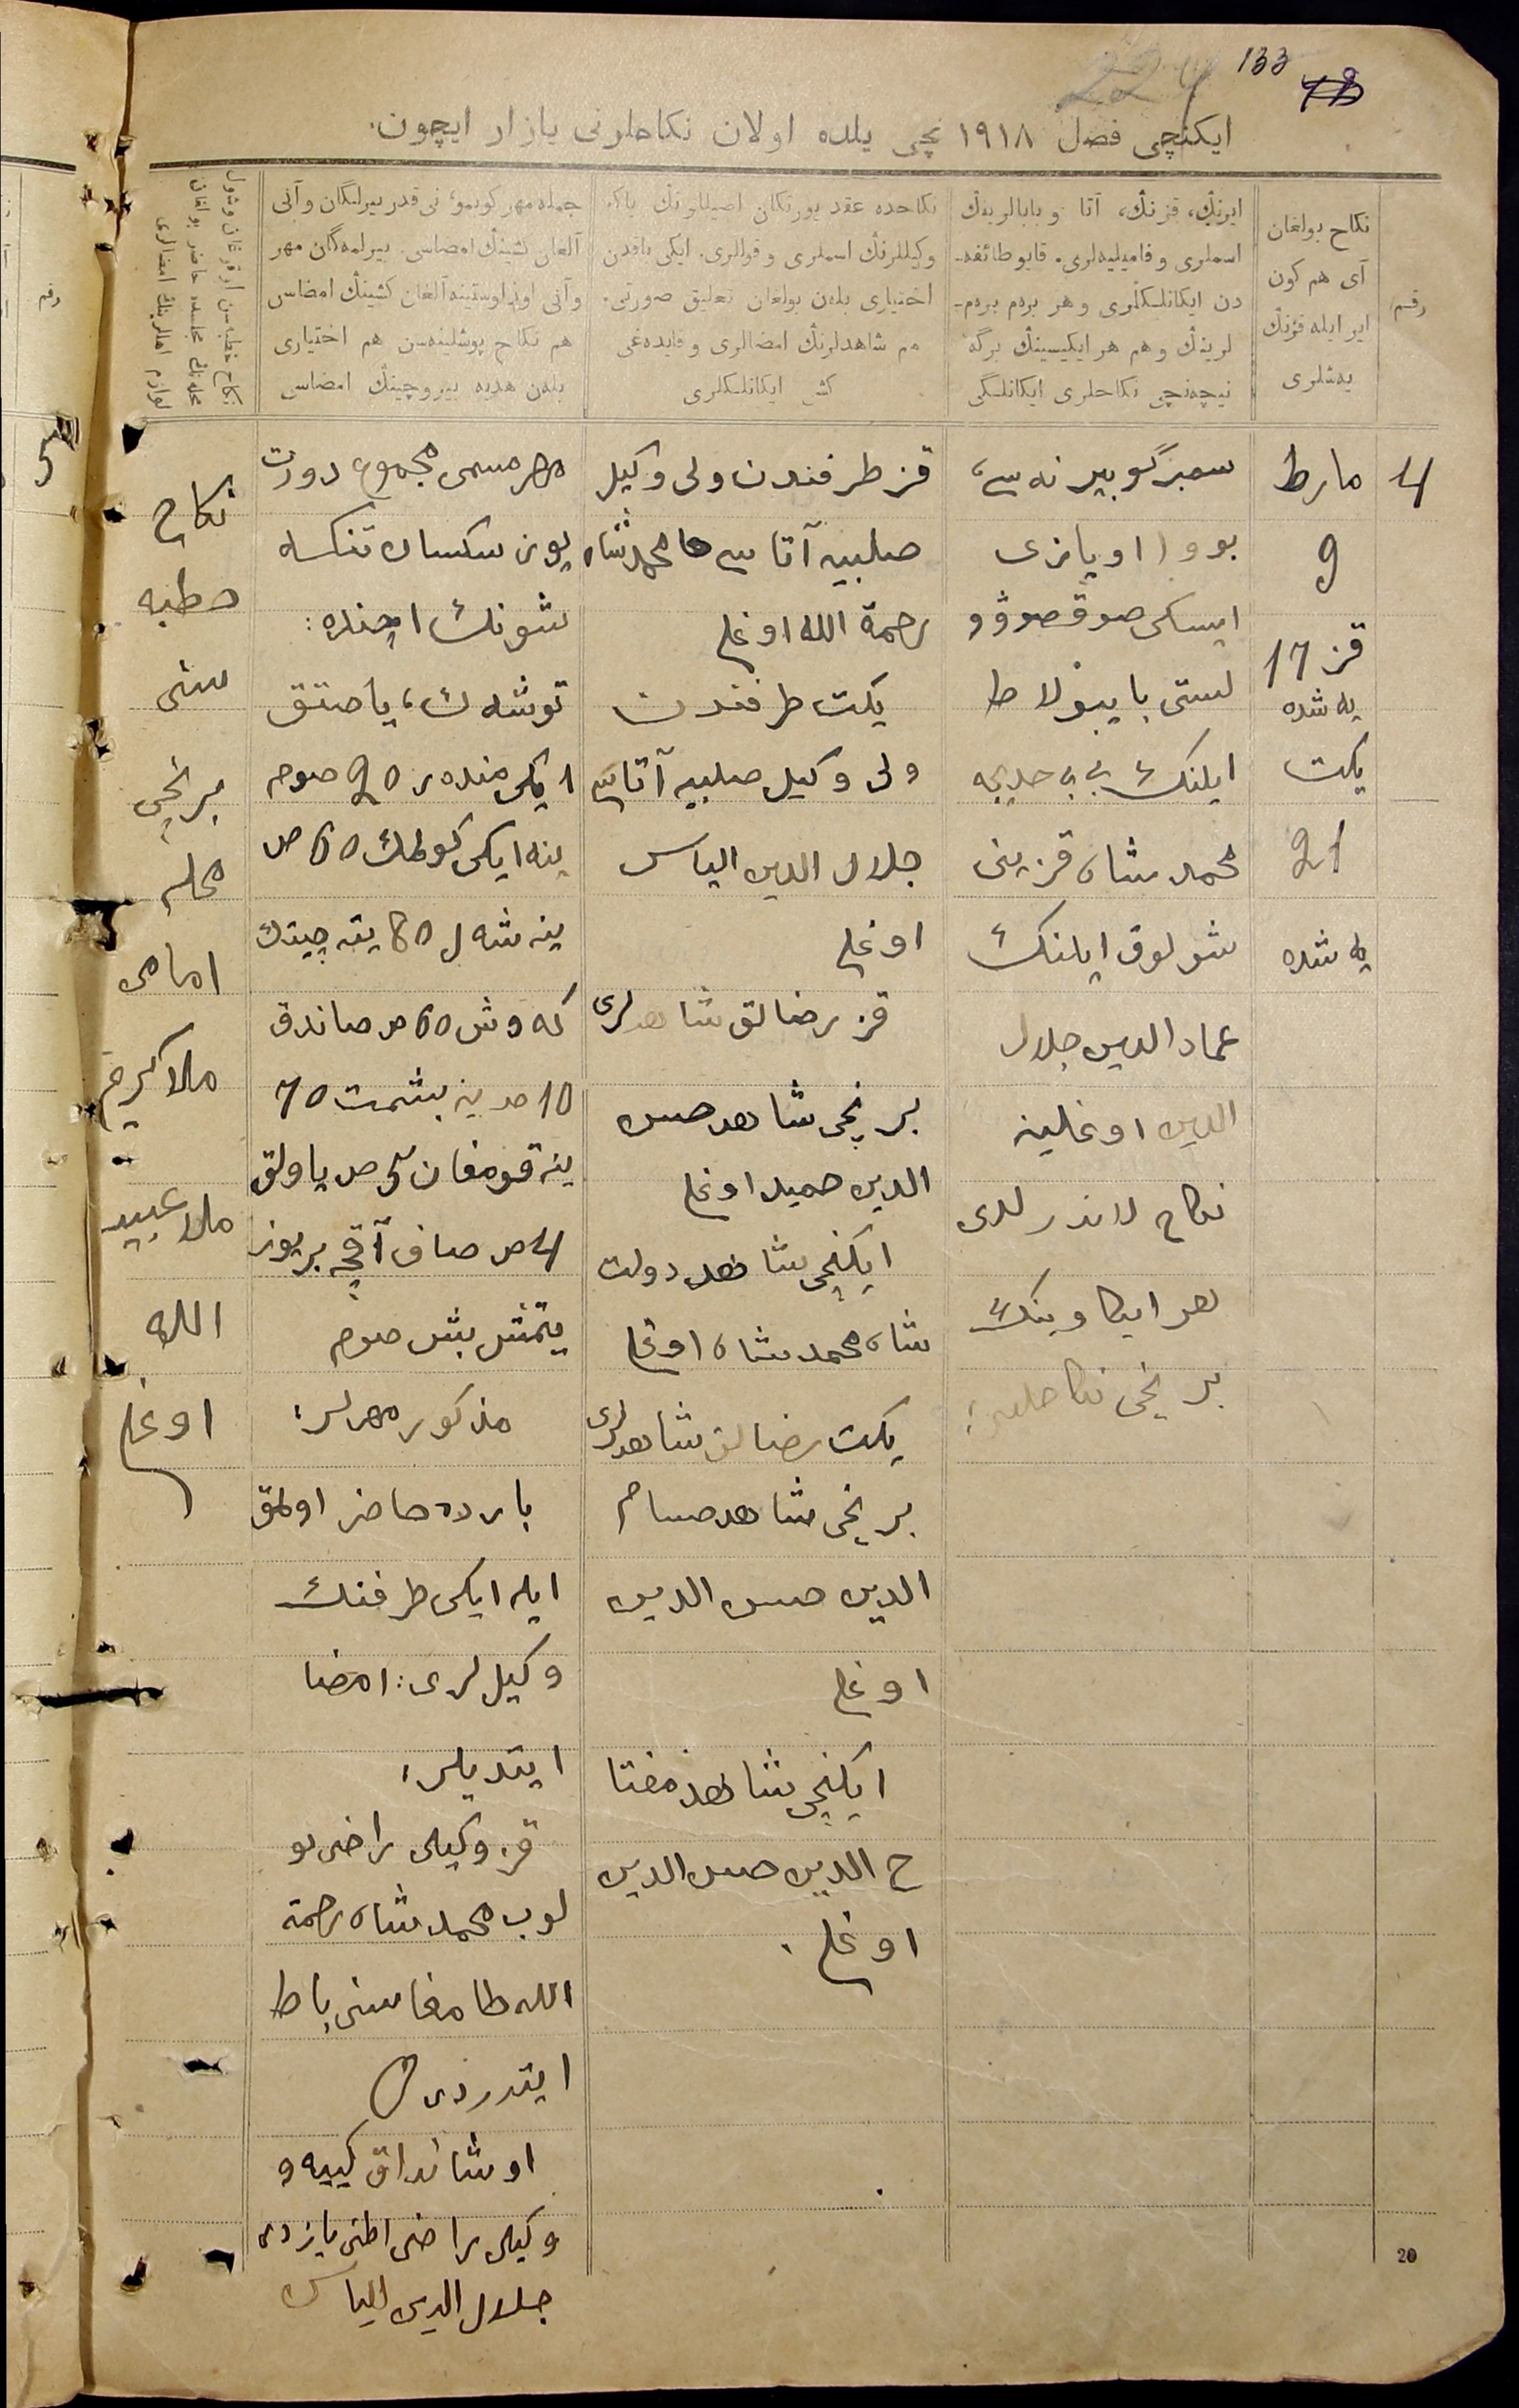 133
ایکنچی فصل ۱۹۱۸ نچی یلده اولان نکاحلرنی یازار ایچون.
رقم
نکاح بولغان
آی هم کون
ایر ایله قزنڭ
یەشلری
ایرنڭ، قزنڭ، آتا و بابالرینڭ
اسملری و فامیلیەلری. قایو طائفه‌
دن ایکانلکلری و هر برەم برەم
لرینڭ و هم هر ایکیسینڭ برگه
نیچەنچی نکاحلری ایکانلیگی
نکاحده عقد یورتکان اصیللرنڭ یاکه
وکیللرنڭ اسملری و قوللری. ایکی یاقدن
اختیاری بلەن بولغان تعلیق صورتی.
هم شاهدلرنڭ امضالری و قایدەغی
کشی ایکانلکلری
جمله مهر کوبمو، نی قدر بیرلگان و آنی
آلغان کشینڭ امضاسی. بیرلمەگان مهر
و آنی اوز اوستینه آلغان کشینڭ امضاسی
هم نکاح پوشلینەسن هم اختیاری
بلەن هدیه بیروچینڭ امضاسی
4
مارط
9
قز 17
یه شده
یکت
21
یه شده
سمبرگوبیرنه سی،
بووا اویازی
ایسکی صوقصوو
لستی بایبولاط
ایلنڭ بی بی خدیجه
محمد شاه قزینی
شولوق ایلنڭ
عماد الدین جلال
الدین اوغلینه
نکاح لاندرلدی
هر ایکاوینڭ
برنجی نکاحلری؛
قز طرفندن ولی وکیل
صلبیه آتاسی محمدشاه
رحمة الله اوغلی
یکت طرفندن
ولی وکیل صلبیه آتاسی
جلال الدین الیاس
اوغلی
قز رضالق شاهدلری
برنجی شاهد حسن
الدین حمید اوغلی
ایکنجی شاهد دولت
شاه محمد شاه اوغلی
یکت رضالق شاهدلری
برنجی شاهد حسام
الدین حسن الدین
اوغلی
ایکنجی شاهد مفتا
ح الدین حسن الدین
اوغلی.
مهر مسمی مجموع دورت
یوز سکسان تنکه
شونڭ اچنده:
توشه ك، یاصتق
ایکی منده ر 20 صوم
ینه ایکی کولمك 60 ص
ینه شه ل 80 ینه چیتك
که وش 60 ص صاندق
10 ص ینه بشمت 70
ینه قومغان 5 ص یاولق
4 ص صاف آقچه بر یوز
یتمش بش صوم
مذکور مهرلر؛
بارده حاضر اولمق
ایله ایکی طرفنڭ
وکیل لری: امضا
ایتدیلر؛
قز وکیلی راضی بو
لوب محمد شاه رحمة
الله طامغاسنی باط
ایتدردی
اوشانداق کییه و
وکیلی راضی اطنی یازدی
جلال الدین الیاس
نکاح
خطبه
سنی
برنجی
محله
امامی
ملا کریم
ملا عبید
الله
اوغلی
رقم
5
20